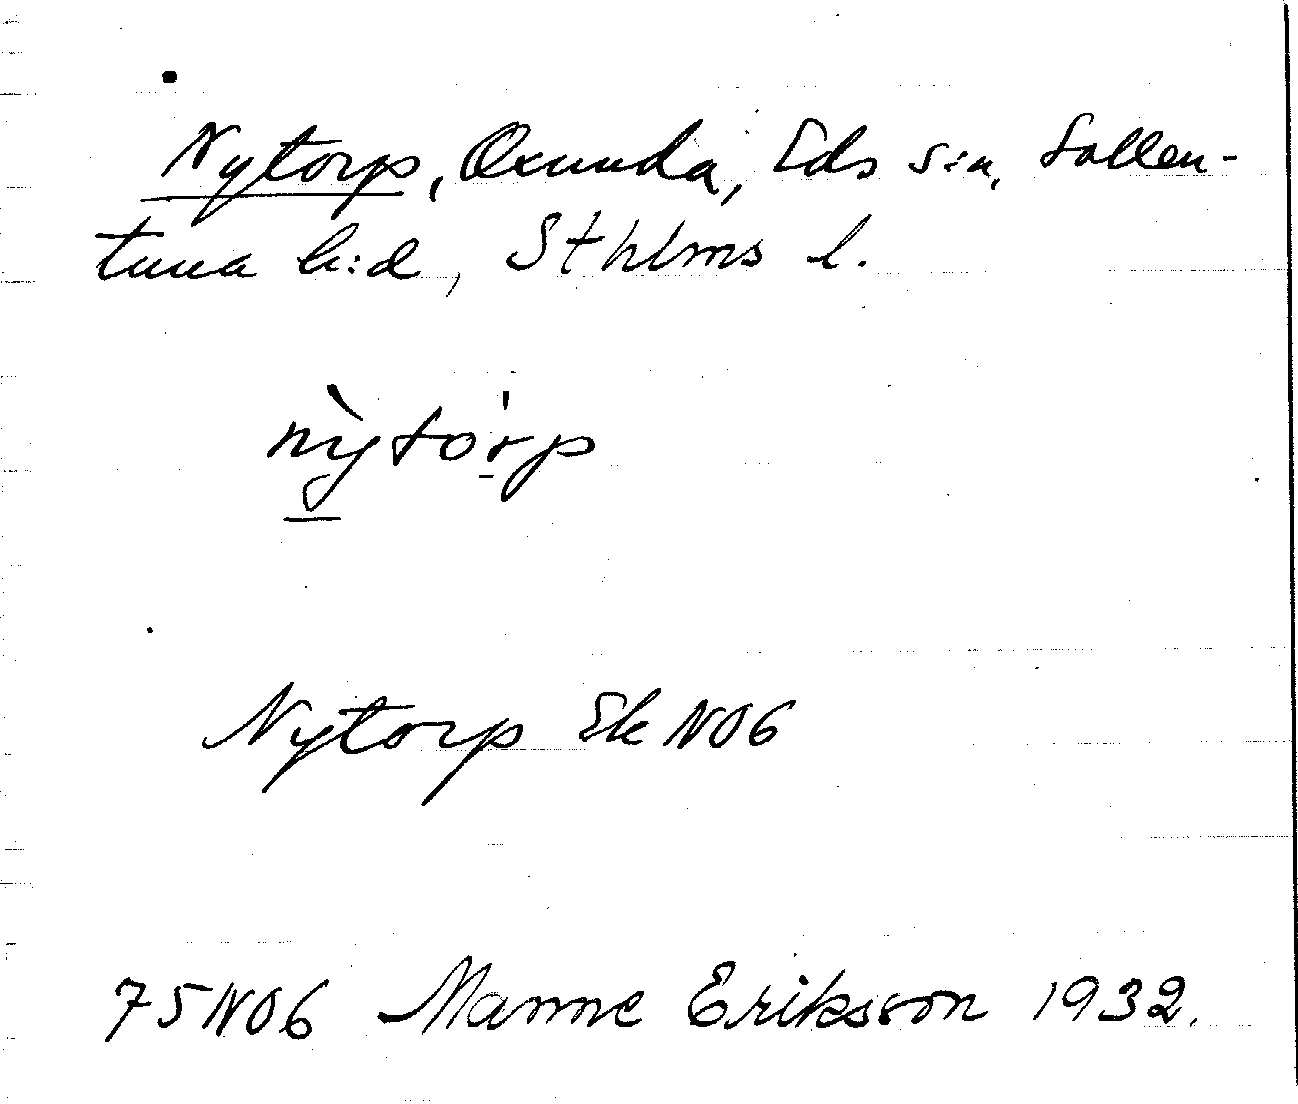 Nytorp, Oxunda, Eds s:n, Sollen-
tuna h:d, Sthlms l.
nỳtórp
Nytorp Ek NO6
75NO6 Manne Eriksson 1932.